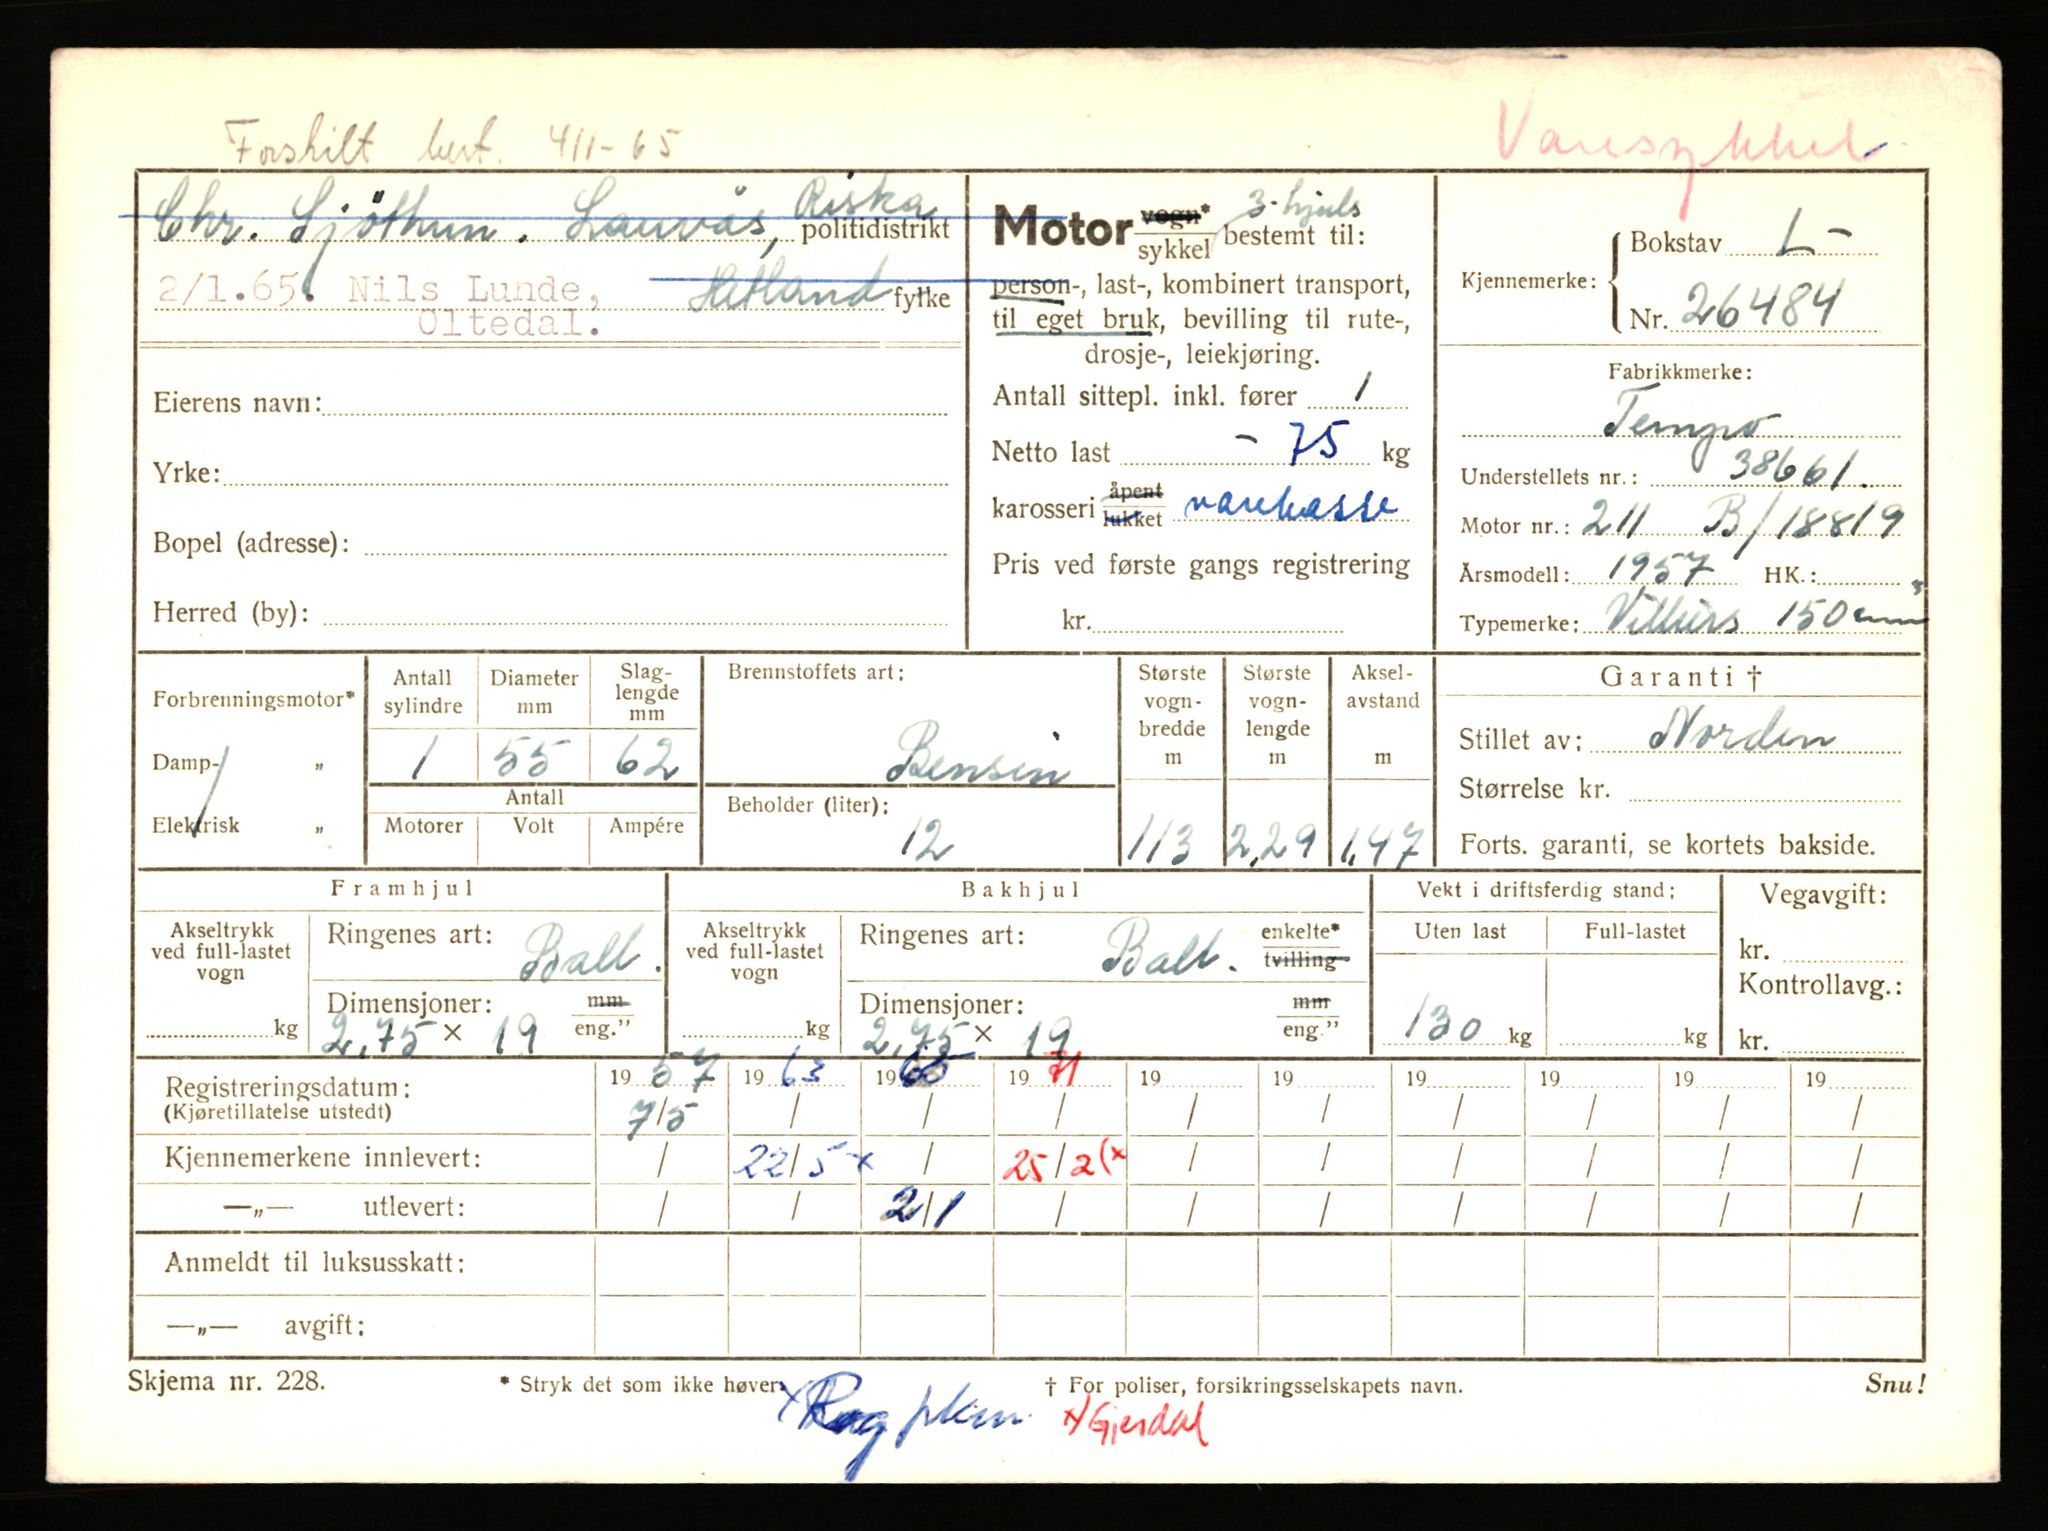 Forskilt best. 4/1-65
Varesykkel
Chr. Sjöthun. Lauvås, Riska politidistrikt
2/1.65. Nils Lunde, Hetland fylke
Oltedal.
Eierens navn:
Yrke:
Bopel (adresse):
Herred (by):
Motor vogn* / sykkel 3-hjuls bestemt til:
person-, last-, kombinert transport,
til eget bruk, bevilling til rute-,
drosje-, leiekjøring.
Antall sittepl. inkl. fører 1
Netto last - 75 kg
karosseri åpent / lukket varekasse
Pris ved første gangs registrering
kr.
Kjennemerke: Bokstav L-
Nr. 26484
Fabrikkmerke:
Tempo
Understellets nr.: 38661.
Motor nr.: 211 B/18819
Årsmodell: 1957 HK.:
Typemerke: Villiers 150 cm³
Forbrenningsmotor*
Damp- „
Elektrisk „
Antall sylindre Diameter mm Slag-lengde mm
1 55 62
Antall
Motorer Volt Ampére
Brennstoffets art:
Bensin
Beholder (liter):
12
Største vogn-bredde m
113
Største vogn-lengde m
2,29
Aksel-avstand m
1,47
Garanti †
Stillet av: Norden
Størrelse kr.
Forts. garanti, se kortets bakside.
Framhjul
Akseltrykk ved full-lastet vogn
kg
Ringenes art: Ball.
Dimensjoner: mm / eng.”
2,75 × 19
Bakhjul
Akseltrykk ved full-lastet vogn
kg
Ringenes art: Ball. enkelte* / tvilling
Dimensjoner: mm / eng.”
2,75 × 19
Vekt i driftsferdig stand:
Uten last Full-lastet
130 kg kg
Vegavgift:
kr.
Kontrollavg.:
kr.
Registreringsdatum: 1957 1963 1965 1971 19 19 19 19 19 19
(Kjøretillatelse utstedt) 7/5 / / / / / / / / /
Kjennemerkene innlevert: / 22/5 x / 25/2 (x / / / / / /
—„— utlevert: / / 2/1 / / / / / / /
Anmeldt til luksusskatt:
—„— avgift:
Skjema nr. 228.
* Stryk det som ikke høver.
† For poliser, forsikringsselskapets navn.
Snu!
x/ Gjesdal